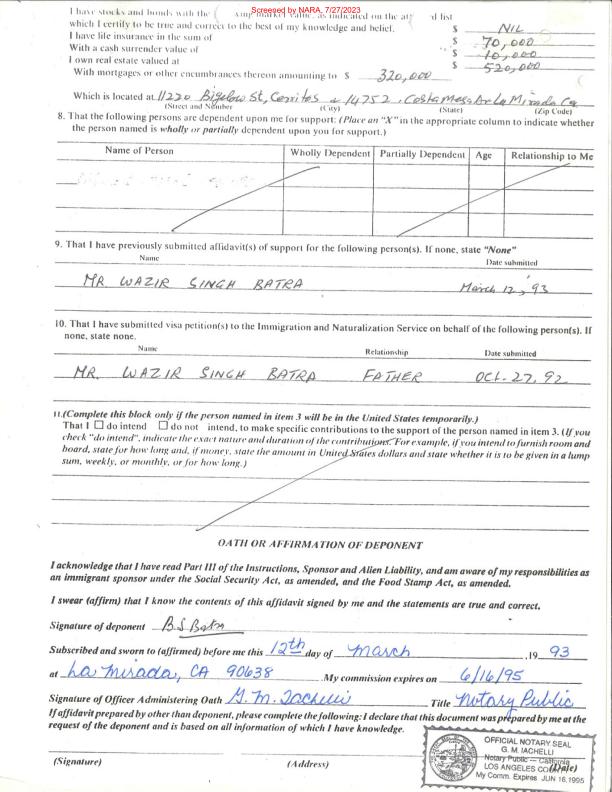 Screened by NARA, 7/27/2023
I have stocks and bonds with the market value, as indicated on the list
which I certify to be true and correct to the best of my knowledge and belief. $ NIL
I have life insurance in the sum of $ 70,000
With a cash surrender value of $ 10,000
I own real estate valued at $ 520,000
With mortgages or other encumbrances thereon amounting to $ 320,000
Which is located at 11220 Bigelow St, Cerritos & 14752, Costa Mesa Dr La Mirada Ca
(Street and Number) (City) (State) (Zip Code)
8. That the following persons are dependent upon me for support: (Place an "X" in the appropriate column to indicate whether
the person named is wholly or partially dependent upon you for support.)
Name of Person Wholly Dependent Partially Dependent Age Relationship to Me
9. That I have previously submitted affidavit(s) of support for the following person(s). If none, state "None"
Name Date submitted
MR WAZIR SINGH BATRA March 12, 93
10. That I have submitted visa petition(s) to the Immigration and Naturalization Service on behalf of the following person(s). If
none, state none.
Name Relationship Date submitted
MR. WAZIR SINGH BATRA FATHER OCT. 27, 92
11.(Complete this block only if the person named in item 3 will be in the United States temporarily.)
That I ☐ do intend ☐ do not intend, to make specific contributions to the support of the person named in item 3. (If you
check "do intend", indicate the exact nature and duration of the contributions. For example, if you intend to furnish room and
board, state for how long and, if money, state the amount in United States dollars and state whether it is to be given in a lump
sum, weekly, or monthly, or for how long.)
OATH OR AFFIRMATION OF DEPONENT
I acknowledge that I have read Part III of the Instructions, Sponsor and Alien Liability, and am aware of my responsibilities as
an immigrant sponsor under the Social Security Act, as amended, and the Food Stamp Act, as amended.
I swear (affirm) that I know the contents of this affidavit signed by me and the statements are true and correct.
Signature of deponent B.S Batra
Subscribed and sworn to (affirmed) before me this 12th day of March ,19 93
at La Mirada, CA 90638 .My commission expires on 6/16/95
Signature of Officer Administering Oath G. M. Iachelli Title Notary Public
If affidavit prepared by other than deponent, please complete the following: I declare that this document was prepared by me at the
request of the deponent and is based on all information of which I have knowledge.
(Signature) (Address) (Date)
OFFICIAL NOTARY SEAL
G. M. IACHELLI
Notary Public — California
LOS ANGELES COUNTY
My Comm. Expires JUN 16,1995